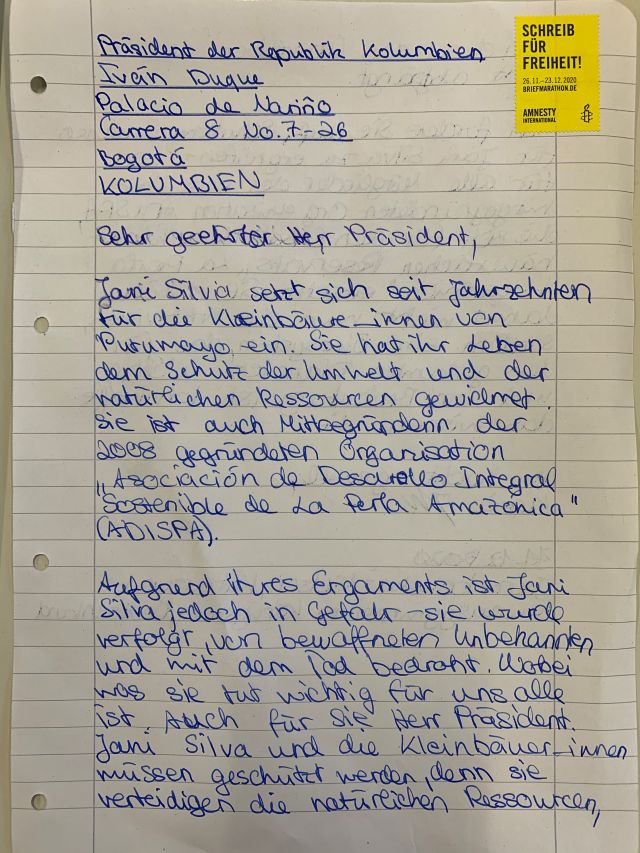 SCHREIB
FÜR
FREIHEIT!
26.11.–23.12.2020
BRIEFMARATHON.DE
AMNESTY
INTERNATIONAL
Präsident der Republik Kolumbien
Iván Duque
Palacio de Nariño
Carrera 8 No. 7-26
Bogotá
KOLUMBIEN
Sehr geehrter Herr Präsident,
Jani Silvia setzt sich seit Jahrzehnten
für die Kleinbäure_innen von
Putumayo ein. Sie hat ihr Leben
dem Schutz der Umwelt und der
natürlichen Ressourcen gewidmet.
Sie ist auch Mitbegründerin der
2008 gegründeten Organisation
„Asociación de Desarollo Integral
Sostenible de La Perla Amazónica"
(ADISPA).
Aufgrund ihres Engaments ist Jani
Silva jedoch in Gefahr – sie wurde
verfolgt, von bewaffneten Unbekannten
und mit dem Tod bedroht. Wobei
was sie tut wichtig für uns alle
ist. Auch für Sie Herr Präsident.
Jani Silva und die Kleinbäuer_innen
müssen geschützt werden, denn sie
verteidigen die natürlichen Ressourcen,